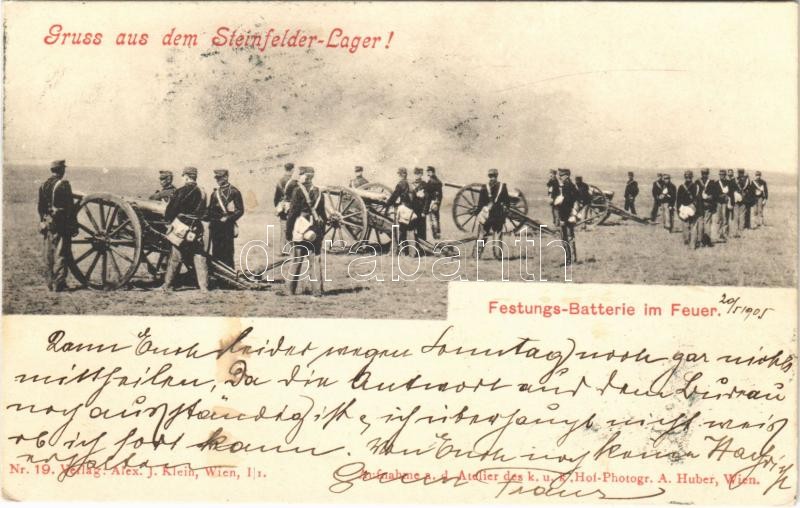 Gruss aus dem Steinfelder-Lager!
darabanth
Festungs-Batterie im Feuer.
20/5 1905
Kann Euch leider wegen Sonntag noch gar nichts
mittheilen, Da die Antwort auf dem Bureau
noch ausständig ist, ich überhaupt nicht weis
ob ich fort kann. Von Euch noch keine
erhalten
Nr. 19. Verlag: Alex. J. Klein, Wien, I/1.
Gruss Franz
Aufnahme a. d. Atelier des k. u. k. Hof-Photogr. A. Huber, Wien.